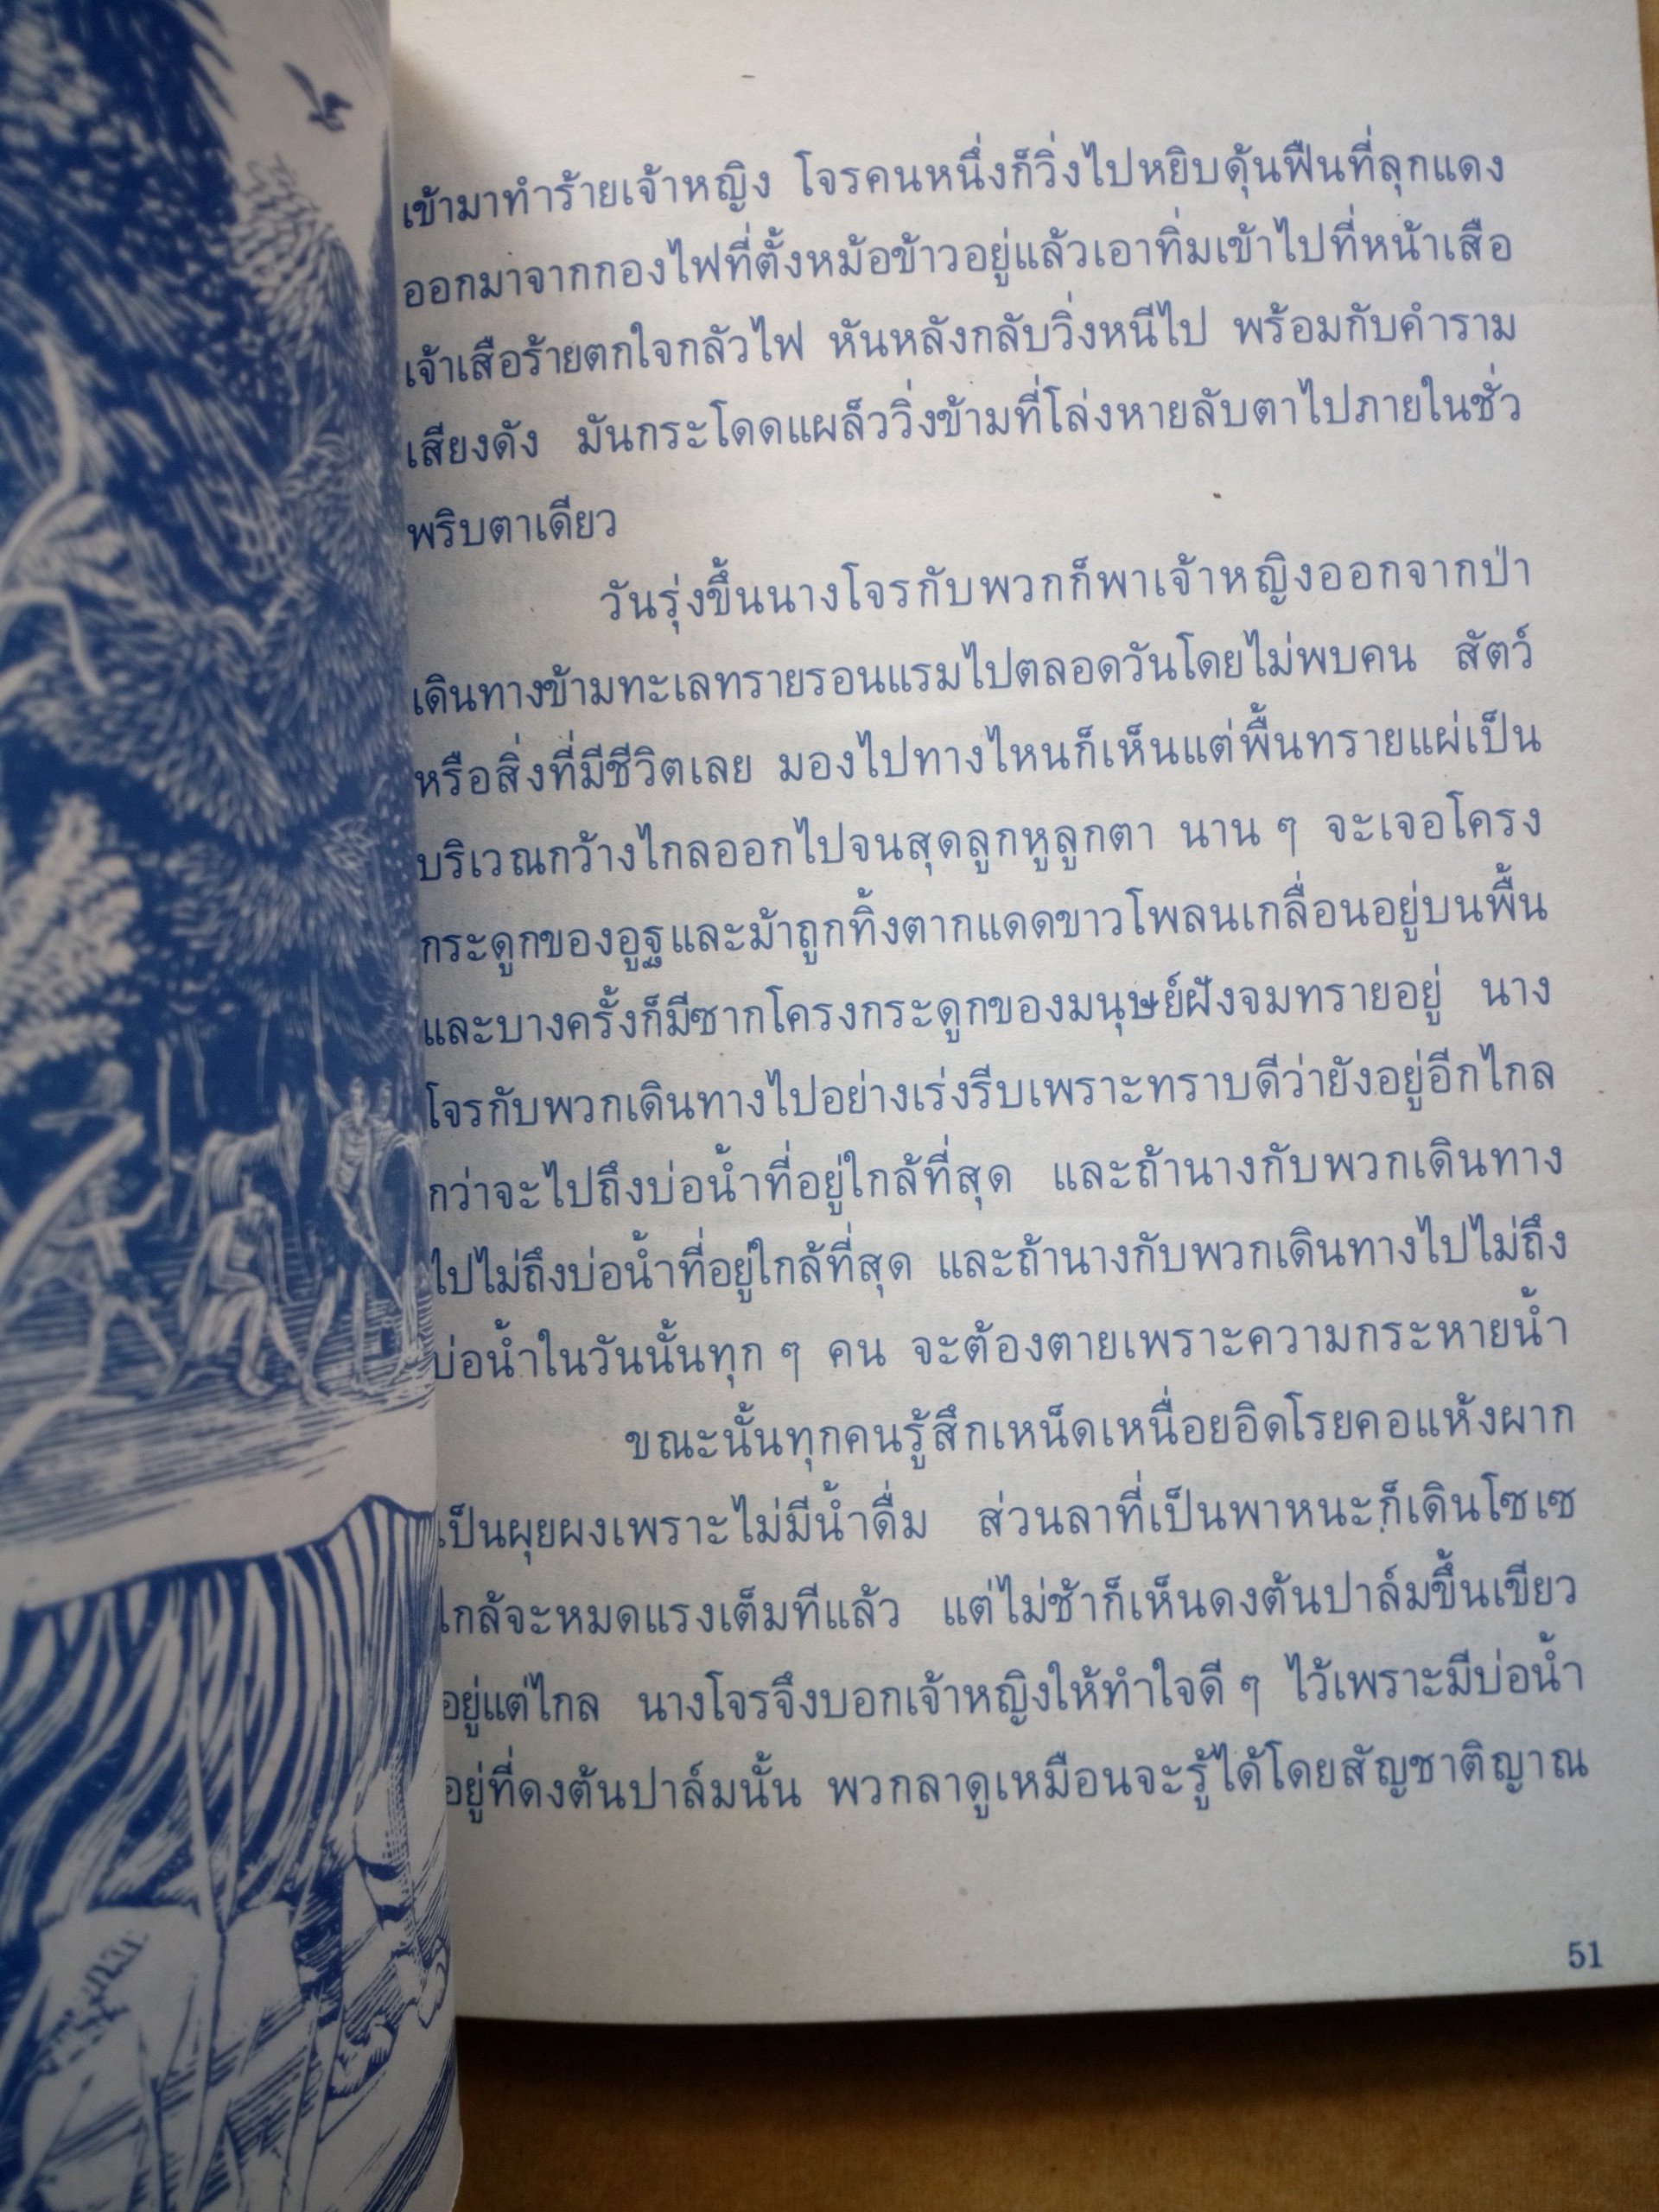 เข้ามาทำร้ายเจ้าหญิง โจรคนหนึ่งก็วิ่งไปหยิบดุ้นฟืนที่ลุกแดง
ออกมาจากกองไฟที่ตั้งหม้อข้าวอยู่แล้วเอาทิ่มเข้าไปที่หน้าเสือ
เจ้าเสือร้ายตกใจกลัวไฟ หันหลังกลับวิ่งหนีไป พร้อมกับคำราม
เสียงดัง มันกระโดดแผล็ววิ่งข้ามที่โล่งหายลับตาไปภายในชั่ว
พริบตาเดียว
วันรุ่งขึ้นนางโจรกับพวกก็พาเจ้าหญิงออกจากป่า
เดินทางข้ามทะเลทรายรอนแรมไปตลอดวันโดยไม่พบคน สัตว์
หรือสิ่งที่มีชีวิตเลย มองไปทางไหนก็เห็นแต่พื้นทรายแผ่เป็น
บริเวณกว้างไกลออกไปจนสุดลูกหูลูกตา นาน ๆ จะเจอโครง
กระดูกของอูฐและม้าถูกทิ้งตากแดดขาวโพลนเกลื่อนอยู่บนพื้น
และบางครั้งก็มีซากโครงกระดูกของมนุษย์ฝังจมทรายอยู่ นาง
โจรกับพวกเดินทางไปอย่างเร่งรีบเพราะทราบดีว่ายังอยู่อีกไกล
กว่าจะไปถึงบ่อน้ำที่อยู่ใกล้ที่สุด และถ้านางกับพวกเดินทาง
ไปไม่ถึงบ่อน้ำที่อยู่ใกล้ที่สุด และถ้านางกับพวกเดินทางไปไม่ถึง
บ่อน้ำในวันนั้นทุก ๆ คน จะต้องตายเพราะความกระหายน้ำ
ขณะนั้นทุกคนรู้สึกเหน็ดเหนื่อยอิดโรยคอแห้งผาก
เป็นผุยผงเพราะไม่มีน้ำดื่ม ส่วนลาที่เป็นพาหนะก็เดินโซเซ
ใกล้จะหมดแรงเต็มทีแล้ว แต่ไม่ช้าก็เห็นดงต้นปาล์มขึ้นเขียว
อยู่แต่ไกล นางโจรจึงบอกเจ้าหญิงให้ทำใจดี ๆ ไว้เพราะมีบ่อน้ำ
อยู่ที่ดงต้นปาล์มนั้น พวกลาดูเหมือนจะรู้ได้โดยสัญชาติญาณ
51